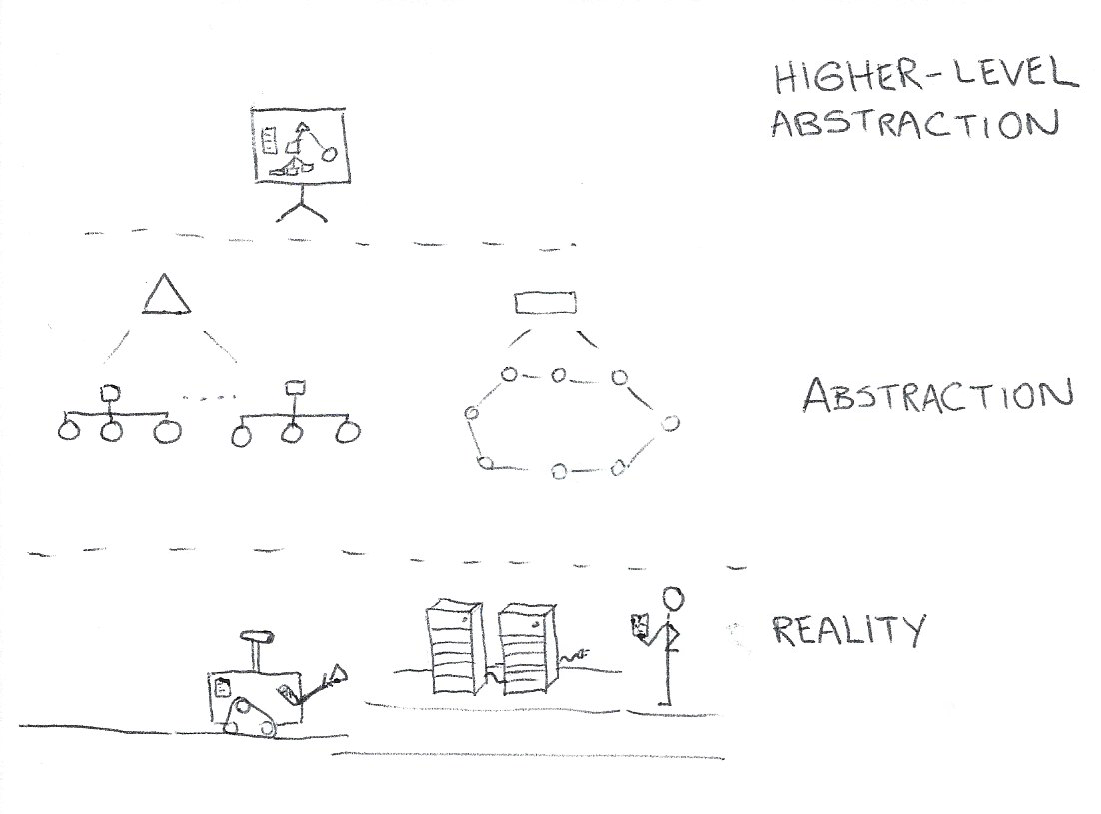 HIGHER-LEVEL
ABSTRACTION
ABSTRACTION
REALITY